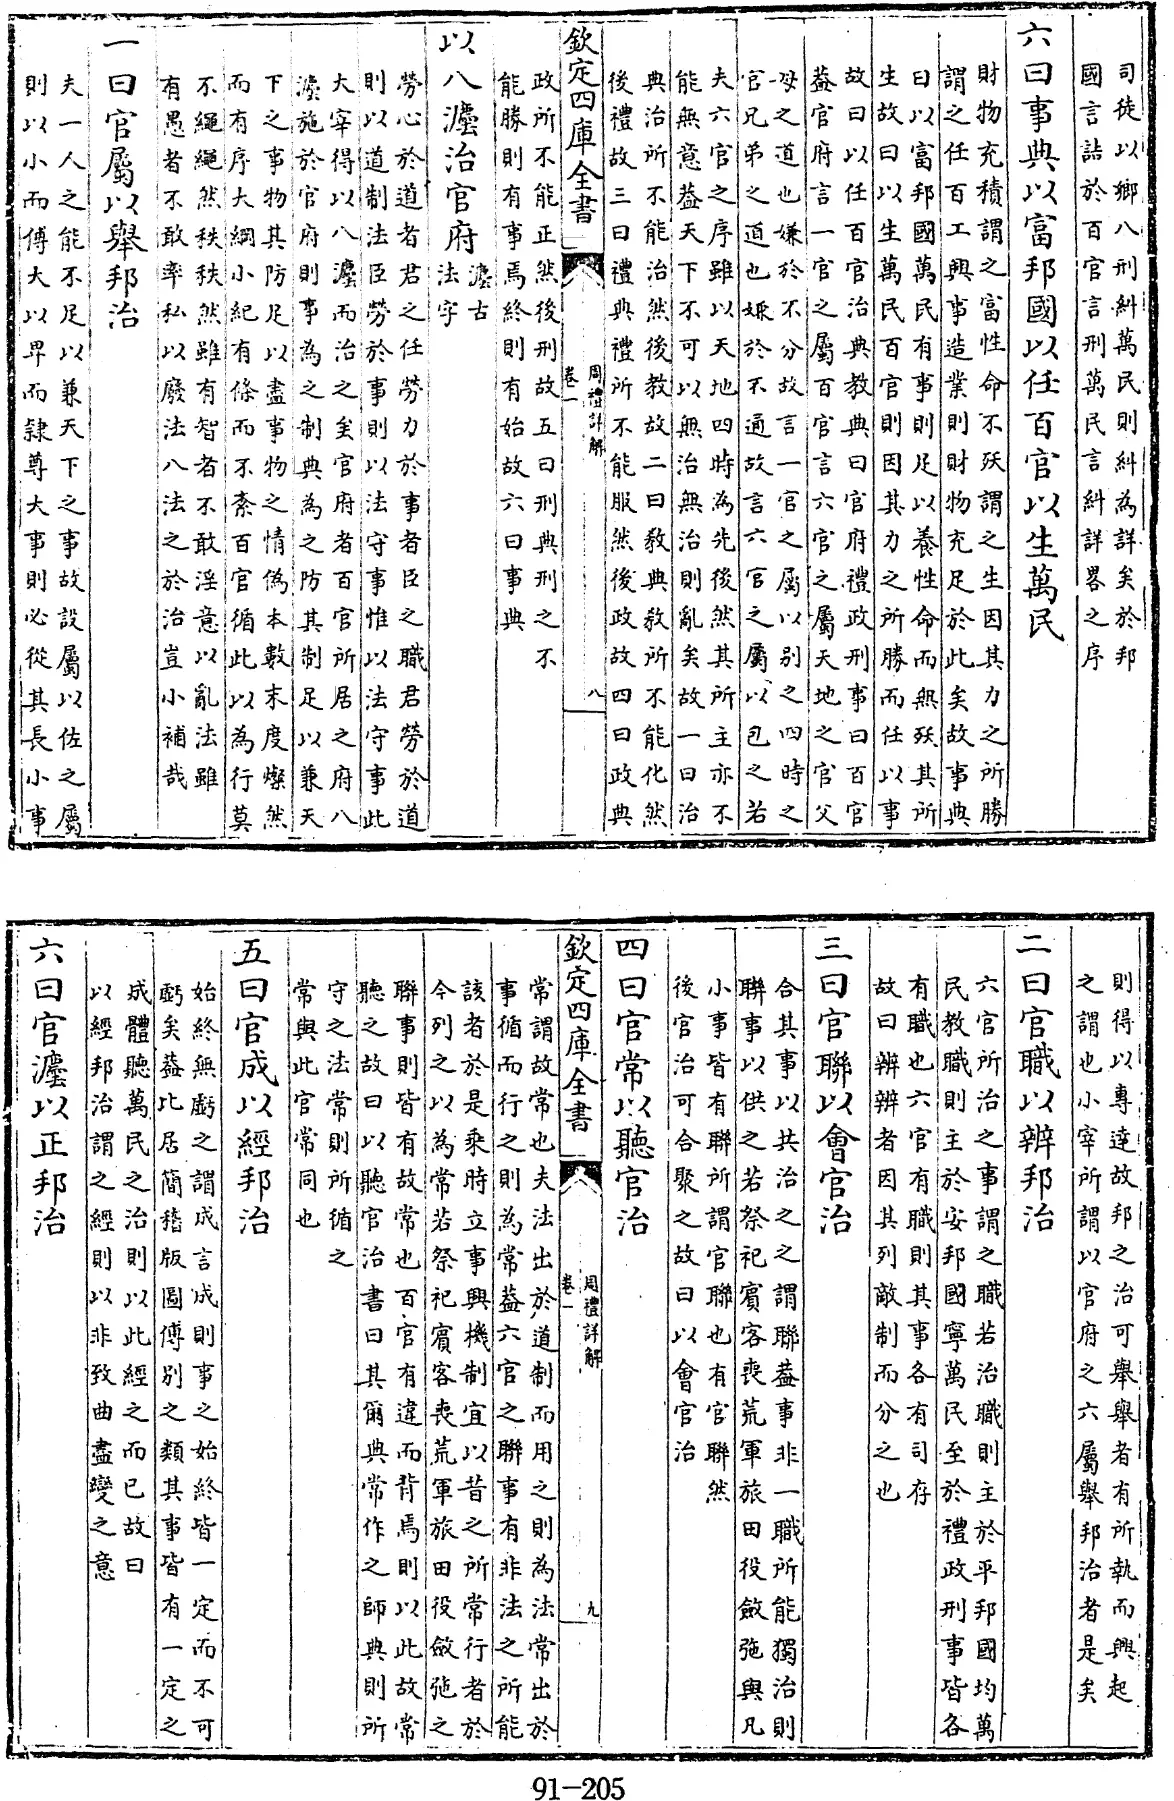 司徒以鄉八刑糾萬民則糾為詳矣於邦
國言詰於百官言刑萬民言糾詳畧之序
六曰事典以富邦國以任百官以生萬民
財物充積謂之富性命不殀謂之生因其力之所勝
謂之任百工興事造業則財物充足於此矣故事典
曰以富邦國萬民有事則足以養性命而無殀其所
生故曰以生萬民百官則因其力之所勝而任以事
故曰以任百官治典教典曰官府禮政刑事曰百官
葢官府言一官之屬百官言六官之屬天地之官父
母之道也嫌於不分故言一官之屬以别之四時之
官兄弟之道也嫌於不通故言六官之屬以包之若
夫六官之序雖以天地四時為先後然其所主亦不
能無意葢天下不可以無治無治則亂矣故一曰治
典治所不能治然後教故二曰教典教所不能化然
後禮故三曰禮典禮所不能服然後政故四曰政典
欽定四庫全書
周禮詳解
卷一
八
政所不能正然後刑故五曰刑典刑之不
能勝則有事焉終則有始故六曰事典
以八灋治官府灋古
法字
勞心於道者君之任勞力於事者臣之職君勞於道
則以道制法臣勞於事則以法守事惟以法守事此
大宰得以八灋而治之矣官府者百官所居之府八
灋施於官府則事為之制典為之防其制足以兼天
下之事物其防足以盡事物之情偽本數末度燦然
而有序大綱小紀有條而不紊百官循此以為行莫
不繩繩然秩秩然雖有智者不敢淫意以亂法雖
有愚者不敢率私以廢法八法之於治豈小補哉
一曰官屬以舉邦治
夫一人之能不足以兼天下之事故設屬以佐之屬
則以小而傅大以畀而隸尊大事則必從其長小事
則得以專達故邦之治可舉舉者有所執而興起
之謂也小宰所謂以官府之六屬舉邦治者是矣
二曰官職以辨邦治
六官所治之事謂之職若治職則主於平邦國均萬
民教職則主於安邦國寧萬民至於禮政刑事皆各
有職也六官有職則其事各有司存
故曰辨辨者因其列敵制而分之也
三曰官聯以會官治
合其事以共治之謂聯葢事非一職所能獨治則
聯事以供之若祭祀賓客喪荒軍旅田役斂弛與凡
小事皆有聯所謂官聯也有官聯然
後官治可合聚之故曰以會官治
四曰官常以聽官治
欽定四庫全書
周禮詳解
卷一
九
常謂故常也夫法出於道制而用之則為法常出於
事循而行之則為常葢六官之聯事有非法之所能
該者於是乘時立事興機制宜以昔之所常行者於
今列之以為常若祭祀賓客喪荒軍旅田役斂弛之
聯事則皆有故常也百官有違而背焉則以此故常
聽之故曰以聽官治書曰其爾典常作之師典則所
守之法常則所循之
常與此官常同也
五曰官成以經邦治
始終無虧之謂成言成則事之始終皆一定而不可
虧矣葢比居簡稽版圖傅别之類其事皆有一定之
成體聽萬民之治則以此經之而已故曰
以經邦治謂之經則以非致曲盡變之意
六曰官灋以正邦治
91-205